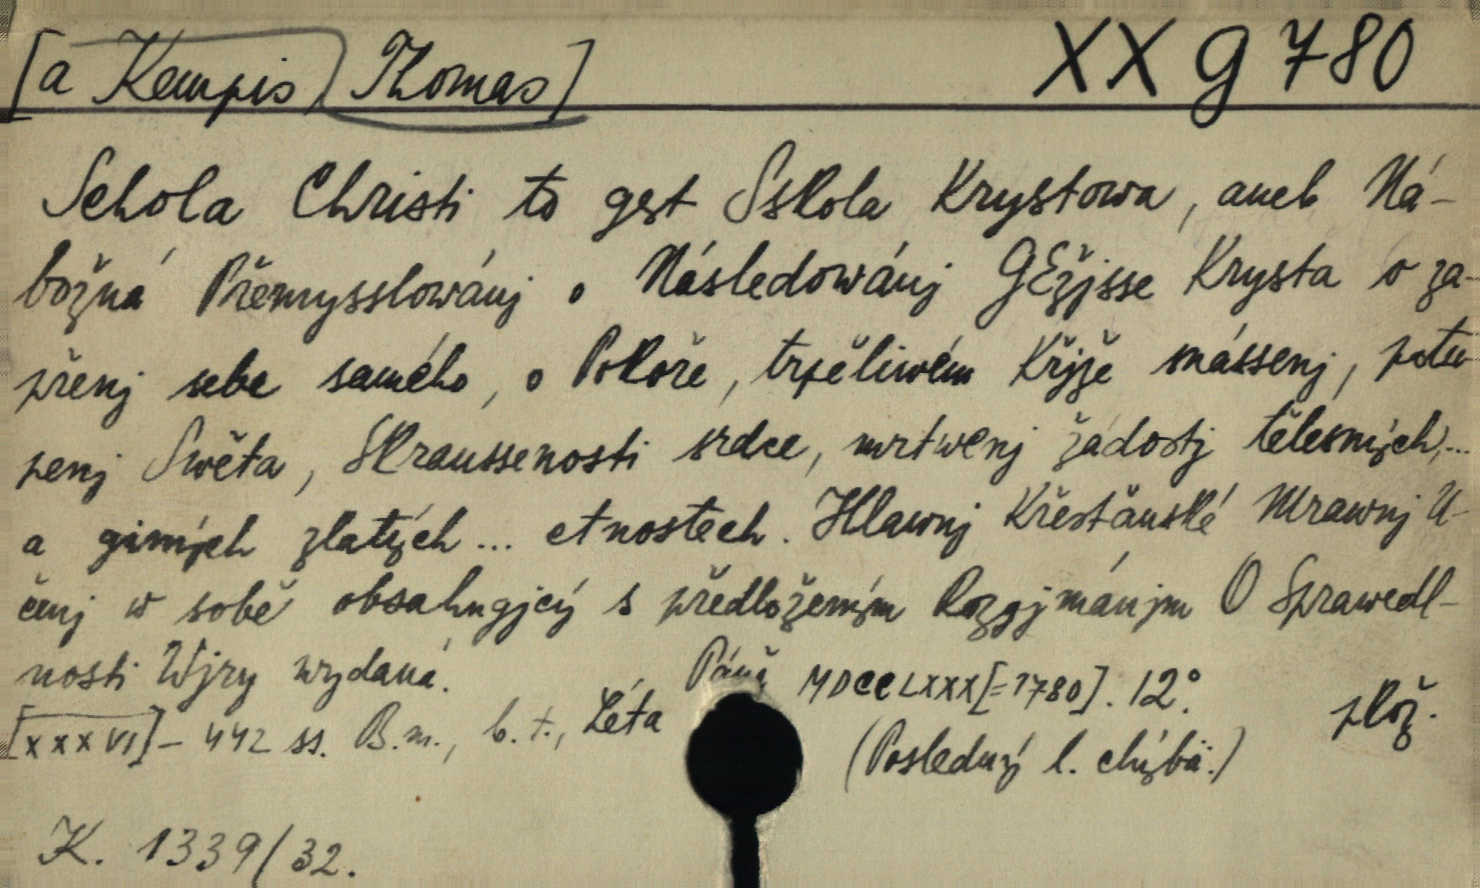 [a Kempis) Thomas]
XX g 780
Schola Christi to gest Sskola Krystowa, aneb Ná-
božná Přemysslowánj o Následowánj GEžjsse Krysta o za-
přenj sebe samého, o Pokoře, trpěliwém Křjže nássenj, potu-
penj Swěta, Skraussenosti srdce, mrtwenj žádostj tělesných,...
a giných zlatých ... ctnostech. Hlawnj Křestǎnské Mrawnj U-
čenj w sobě obsahugjcý s předloženým Rozgjmánjm O Sprawedl-
nosti Wjry wydaná.
[XXXVI] - 442 ss. B.m., b.t., Léta Páně MDCCLXXX [=1780]. 12°. plož.
(Poslední l. chýbá.)
K. 1339/32.